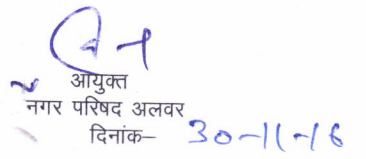 आयुक्त
नगर परिषद अलवर
दिनांक– 30-11-16